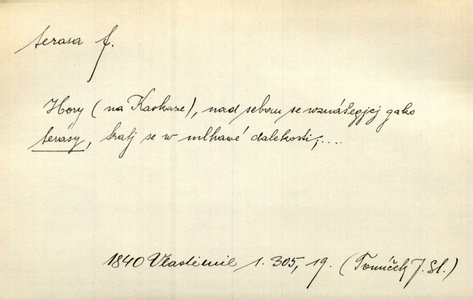 terasa f.
Hory (na Kavkaze), nad sebou se wznášegjcj gako
terasy, tratj se w mlhawé dalekosti,...
1840 Vlastimil 1. 305, 19. (Tomíček J. Sl.)